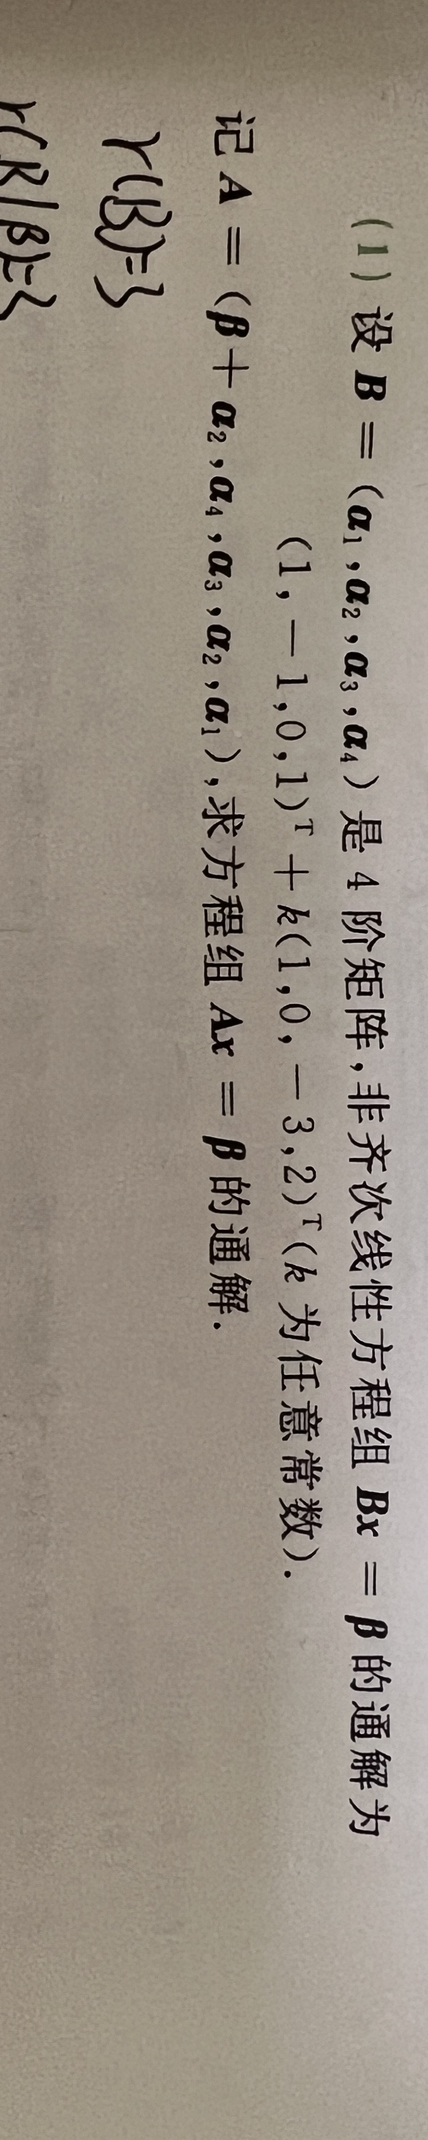 (1) 设 B = (α₁,α₂,α₃,α₄) 是 4 阶矩阵,非齐次线性方程组 Bx = β 的通解为
(1,−1,0,1)ᵀ + k(1,0,−3,2)ᵀ (k 为任意常数).
记 A = (β+α₂,α₄,α₃,α₂,α₁),求方程组 Ax = β 的通解.
r(B)=3
r(B|β)=3